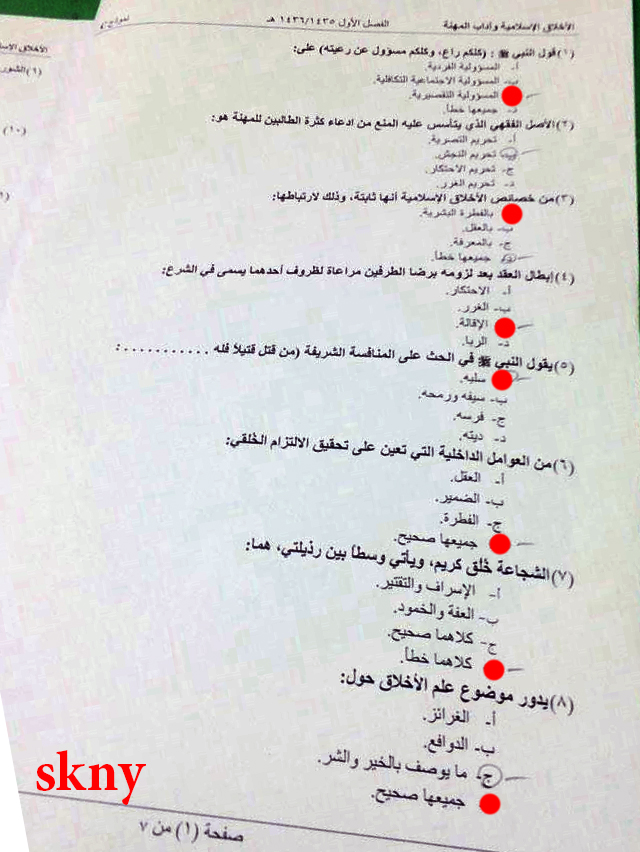 الأخلاق الإسلامية وآداب المهنة الفصل الأول ١٤٣٥/١٤٣٦ هـ نموذج
(١) قول النبي ﷺ : (كلكم راع، وكلكم مسؤول عن رعيته) على:
أ- المسؤولية الفردية.
ب- المسؤولية الاجتماعية التكافلية.
المسؤولية التقصيرية.
د- جميعها خطأ.
(٢) الأصل الفقهي الذي يتأسس عليه المنع من ادعاء كثرة الطالبين للمهنة هو:
أ- تحريم التصرية.
ب- تحريم النجش.
ج- تحريم الاحتكار.
د- تحريم الغرر.
(٣) من خصائص الأخلاق الإسلامية أنها ثابتة، وذلك لارتباطها:
بالفطرة البشرية.
ب- بالعقل.
ج- بالمعرفة.
د- جميعها خطأ.
(٤) إبطال العقد بعد لزومه برضا الطرفين مراعاة لظروف أحدهما يسمى في الشرع:
أ- الاحتكار.
ب- الغرر.
الإقالة.
د- الربا.
(٥) يقول النبي ﷺ في الحث على المنافسة الشريفة (من قتل قتيلاً فله ............:
سلبه.
ب- سيفه ورمحه.
ج- فرسه.
د- ديته.
(٦) من العوامل الداخلية التي تعين على تحقيق الالتزام الخُلقي:
أ- العقل.
ب- الضمير.
ج- الفطرة.
جميعها صحيح.
(٧) الشجاعة خُلق كريم، ويأتي وسطاً بين رذيلتي، هما:
أ- الإسراف والتقتير.
ب- العفة والخمود.
ج- كلاهما صحيح.
كلاهما خطأ.
(٨) يدور موضوع علم الأخلاق حول:
أ- الغرائز.
ب- الدوافع.
ج- ما يوصف بالخير والشر.
جميعها صحيح.
صفحة (١) من ٧
skny
الأخلاق الإسلا
(٩) الشعور
(١٠)